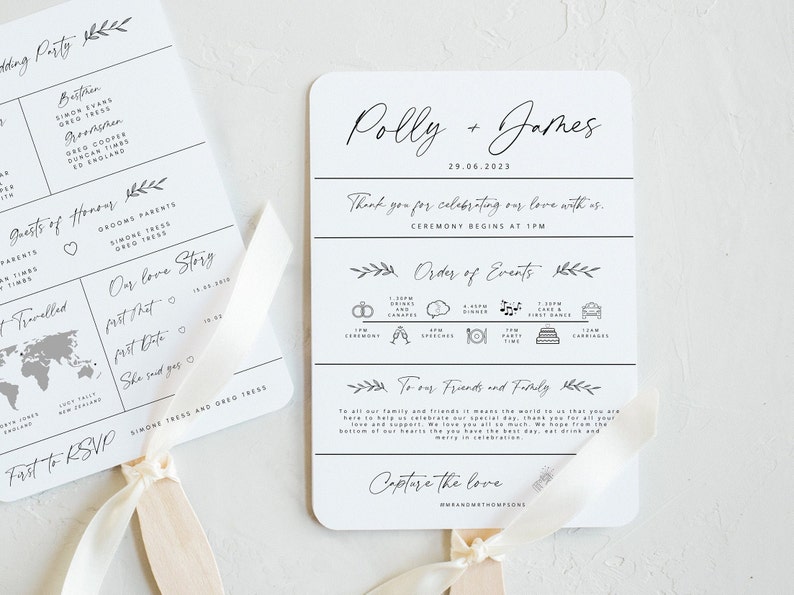 Wedding Party
Bestmen
SIMON EVANS
GREG TRESS
Groomsmen
GREG COOPER
DUNCAN TIMBS
ED ENGLAND
Guests of Honour
PARENTS
TIMBS
TIMBS
GROOMS PARENTS
SIMONE TRESS
GREG TRESS
Travelled
JONES
ENGLAND
LUCY TALLY
NEW ZEALAND
Our love Story
first Met
15.05.2010
first Date
10.02
She said yes
First to RSVP
SIMONE TRESS AND GREG TRESS
Polly + James
29.06.2023
Thank you for celebrating our love with us.
CEREMONY BEGINS AT 1PM
Order of Events
1.30PM
DRINKS
AND
CANAPES
4.45PM
DINNER
7.30PM
CAKE &
FIRST DANCE
1PM
CEREMONY
4PM
SPEECHES
7PM
PARTY
TIME
12AM
CARRIAGES
To our Friends and Family
To all our family and friends it means the world to us that you are
here to help us celebrate our special day, thank you for all your
love and support. We love you all so much. We hope from the
bottom of our hearts the you have the best day, eat drink and
merry in celebration.
Capture the love
#MRANDMRTHOMPSONS